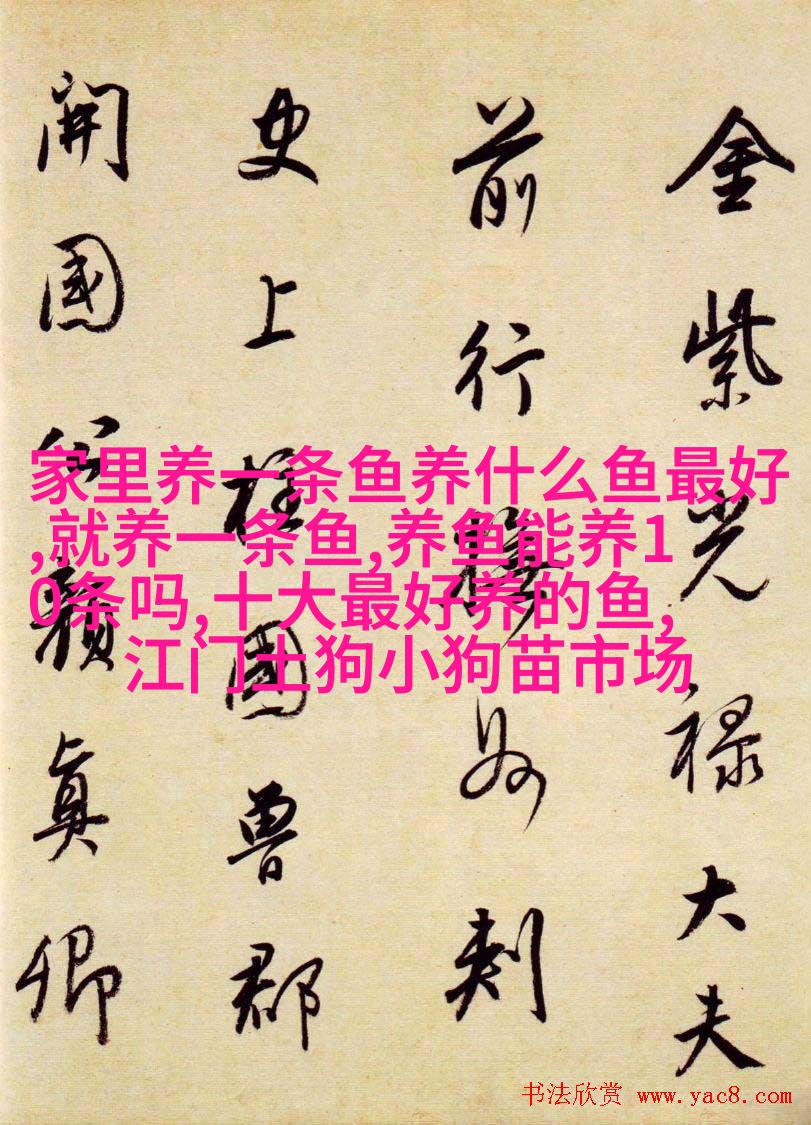 金紫光禄大夫
前行州刺
史上柱國魯郡
開國公顔真卿
家里养一条鱼养什么鱼最好
,就养一条鱼,养鱼能养1
0条吗,十大最好养的鱼,
江门土狗小狗苗市场
书法欣赏 www.yac8.com